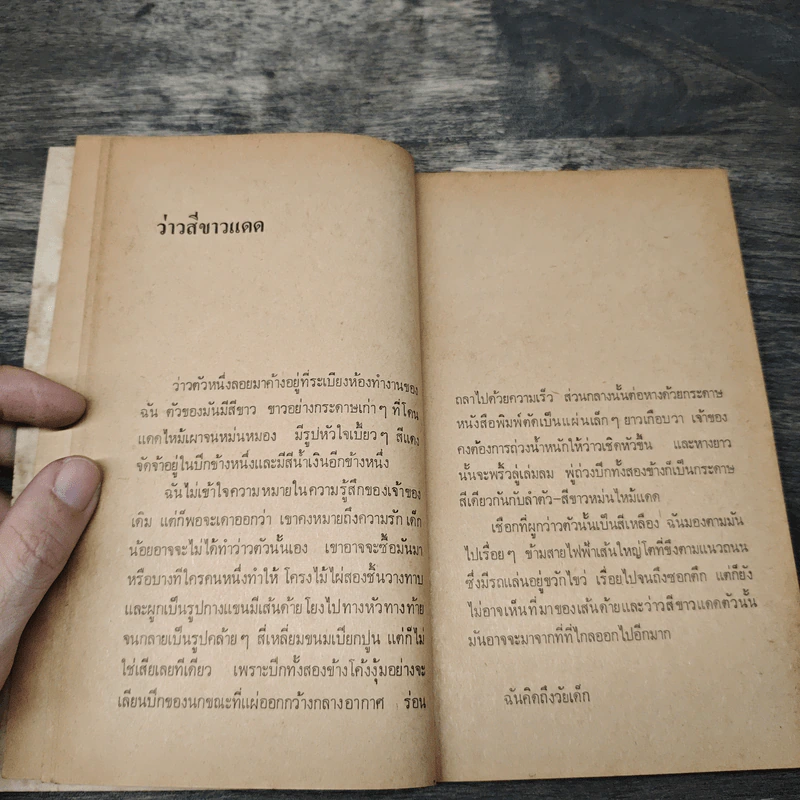 ว่าวสีขาวแดด
ว่าวตัวหนึ่งลอยมาค้างอยู่ที่ระเบียงห้องทำงานของ
ฉัน ตัวของมันมีสีขาว ขาวอย่างกระดาษเก่าๆ ที่โดน
แดดไหม้เผาจนหม่นหมอง มีรูปหัวใจเบี้ยวๆ สีแดง
จัดจ้าอยู่ในปีกข้างหนึ่งและมีสีน้ำเงินอีกข้างหนึ่ง
ฉันไม่เข้าใจความหมายในความรู้สึกของเจ้าของ
เดิม แต่ก็พอจะเดาออกว่า เขาคงหมายถึงความรัก เด็ก
น้อยอาจจะไม่ได้ทำว่าวตัวนั้นเอง เขาอาจจะซื้อมันมา
หรือบางทีใครคนหนึ่งทำให้ โครงไม้ไผ่สองชิ้นวางทาบ
และผูกเป็นรูปกางแขนมีเส้นด้ายโยงไปทางหัวทางท้าย
จนกลายเป็นรูปคล้ายๆ สี่เหลี่ยมขนมเปียกปูน แต่ก็ไม่
ใช่เสียเลยทีเดียว เพราะปีกทั้งสองข้างโค้งงุ้มอย่างจะ
เลียนปีกของนกขณะที่แผ่ออกกว้างกลางอากาศ ร่อน
ถลาไปด้วยความเร็ว ส่วนกลางนั้นต่อหางด้วยกระดาษ
หนังสือพิมพ์ตัดเป็นแผ่นเล็กๆ ยาวเกือบวา เจ้าของ
คงต้องการถ่วงน้ำหนักให้ว่าวเชิดหัวขึ้น และหางยาว
นั้นจะพริ้วลู่เล่มลม พู่ถ่วงปีกทั้งสองข้างก็เป็นกระดาษ
สีเดียวกันกับลำตัว-สีขาวหม่นไหม้แดด
เชือกที่ผูกว่าวตัวนั้นเป็นสีเหลือง ฉันมองตามมัน
ไปเรื่อยๆ ข้ามสายไฟฟ้าเส้นใหญ่โตที่ขึงตามแนวถนน
ซึ่งมีรถแล่นอยู่ขวักไขว่ เรื่อยไปจนถึงซอกตึก แต่ก็ยัง
ไม่อาจเห็นที่มาของเส้นด้ายและว่าวสีขาวแดดตัวนั้น
มันอาจจะมาจากที่ที่ไกลออกไปอีกมาก
ฉันคิดถึงวัยเด็ก